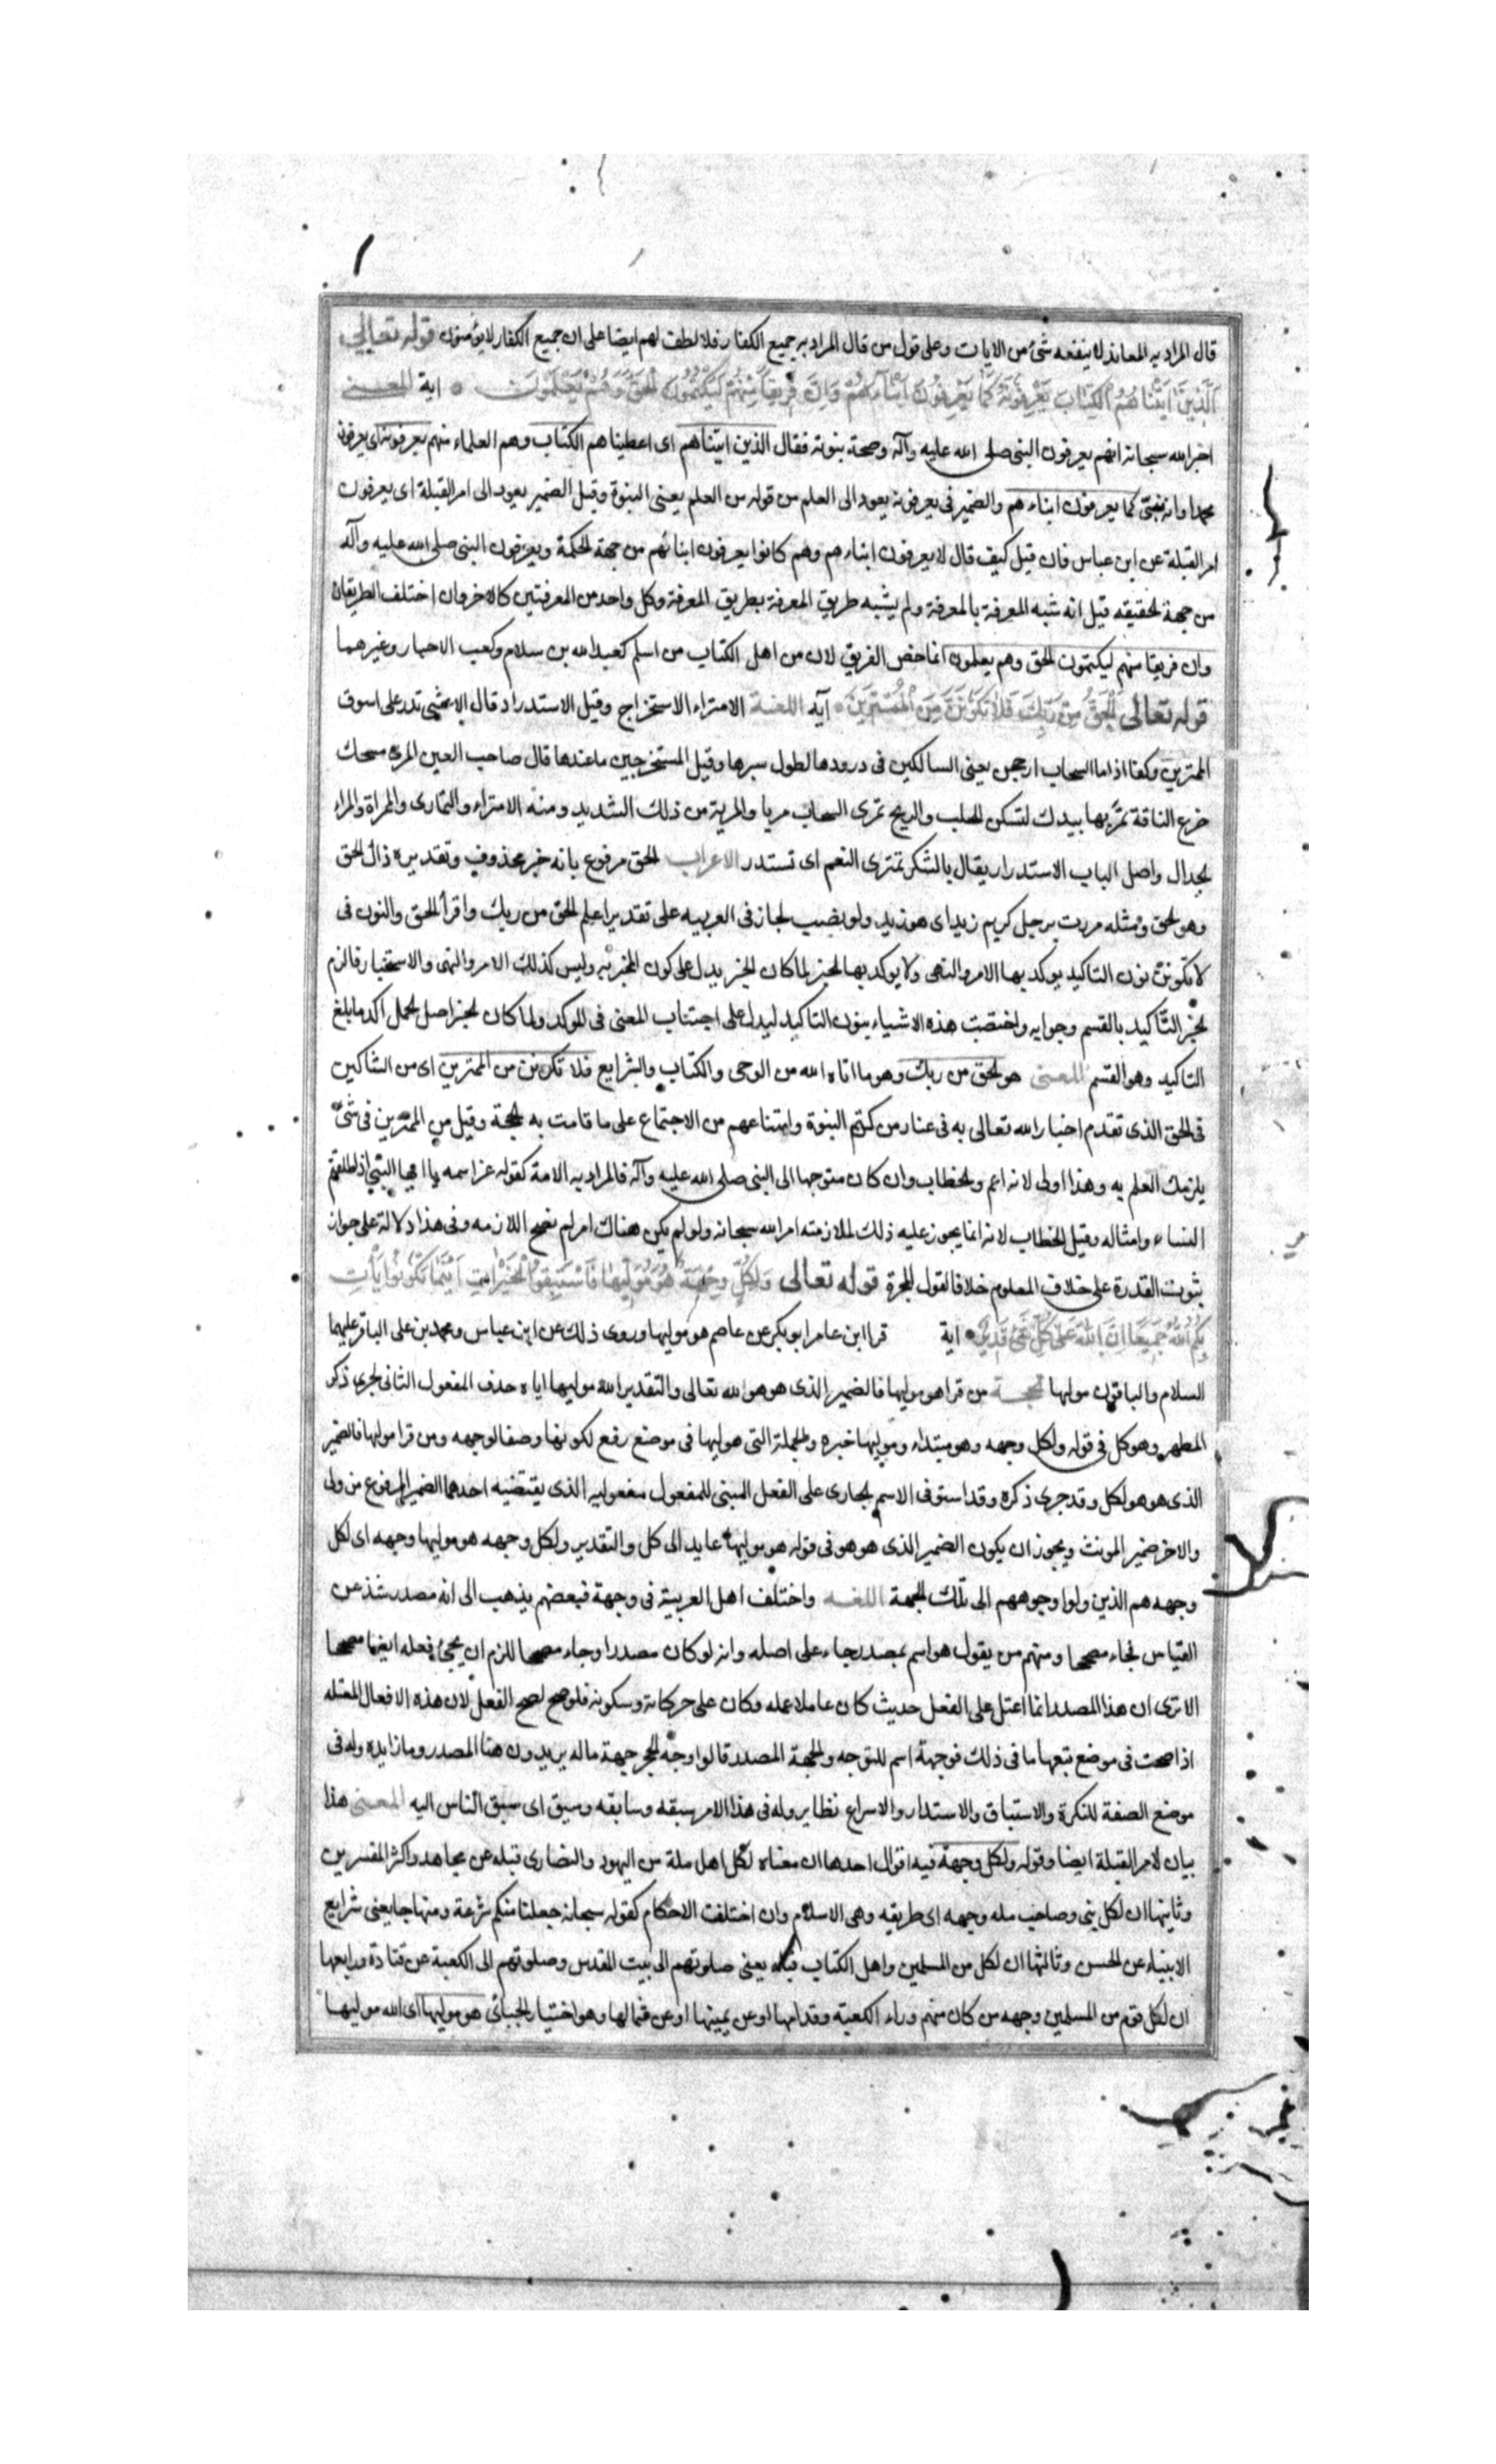 قال المراد به المعاند لا ينفعه شئ من الايات وعلى قول من قال المراد به جميع الكفار فلا لطف لهم ايضا على ان جميع الكفار لا يؤمنون قوله تعالى
اَلَّذِينَ اٰتَيْنَاهُمُ الْكِتَابَ يَعْرِفُونَهُ كَمَا يَعْرِفُونَ اَبْنَآءَهُمْ وَاِنَّ فَرِيقًا مِنْهُمْ لَيَكْتُمُونَ الْحَقَّ وَهُمْ يَعْلَمُونَ اية المعنى
اخبر الله سبحانه انهم يعرفون النبى صلى الله عليه وآله وصحة نبوته فقال الذين اتيناهم اى اعطيناهم الكتاب وهم العلماء منهم يعرفونه اى يعرفون
محمدا وانه كما يعرفون ابناءهم والضمير فى يعرفونه يعود الى العلم من قوله من العلم يعنى النبوة وقيل الضمير يعود الى امر القبلة اى يعرفون
امر القبلة عن ابن عباس فان قيل كيف قال لا يعرفون ابناءهم وهم كانوا يعرفون ابنائهم من جهة الحكمة ويعرفون النبى صلى الله عليه وآله
من جهة الحقيقه قيل انه شبه المعرفة بالمعرفة ولم يشبه طريق المعرفة بطريق المعرفة وكل واحد من المعرفتين كالاخر وان اختلف الطريقان
وان فريقا منهم ليكتمون الحق وهم يعلمون انما خص الفريق لان من اهل الكتاب من اسلم كعبد الله بن سلام وكعب الاحبار وغيرهما
قوله تعالى اَلْحَقُّ مِنْ رَبِّكَ فَلَا تَكُونَنَّ مِنَ الْمُمْتَرِينَ آيه اللغة الامتراء الاستخراج وقيل الاستدراد قال الاعشى تدر على اسوف
الممترين وكفا اذا ما السحاب ارجحن يعنى السالكين فى درودها لطول سيرها وقيل المستخرجين ما عندها قال صاحب العين المرى مسحك
ضرع الناقة تمريها بيدك لتسكن للحلب والريح تمرى السحاب مريا والمرية من ذلك الشديد ومنه الامتراء والتمارى والمراة والمراء
الجدال واصل الباب الاستدرار يقال بالشكر تمترى النعم اى تستدر الاعراب الحق مرفوع بانه خبر محذوف وتقديره ذاك الحق
وهو الحق ومثله مررت برجل كريم زيد اى هو زيد ولو نصب لجاز فى العربيه على تقدير اعلم الحق من ربك واقرأ الحق والنون فى
لا تكونن نون التاكيد يوكد بها الامر والنهى ولا يوكد بها الخبر لما كان الخبر يدل على كون المخبر به وليس كذلك الامر والنهى والاستخبار فالزم
الخبر التأكيد بالقسم وجوابه واختصت هذه الاشياء بنون التاكيد ليدل على اجتناب المعنى فى الموكد ولما كان الخبر اصل الجمل اكد بابلغ
التاكيد وهو القسم المعنى هو الحق من ربك وهو ما اتاه الله من الوحى والكتاب والشرايع فلا تكونن من الممترين اى من الشاكين
فى الحق الذى تقدم اخبار الله تعالى به فى عناد من كتم النبوة وامتناعهم من الاجتماع على ما قامت به الحجة وقيل من الممترين فى شئ
يلزمك العلم به وهذا اولى لانه اعم والخطاب وان كان متوجها الى النبى صلى الله عليه وآله فالمراد به الامة كقوله عز اسمه يا ايها النبى اذا طلقتم
النساء وامثاله وقيل الخطاب لانه انما يجوز عليه ذلك لملازمته امر الله سبحانه ولو لم يكن هناك امر لم تصح اللازمه وفى هذا دلالة على جواز
ثبوت القدرة على خلاف المعلوم خلافا لقول المجبرة قوله تعالى وَلِكُلٍّ وِجْهَةٌ هُوَ مُوَلِّيهَا فَاسْتَبِقُوا الْخَيْرَاتِ اَيْنَمَا تَكُونُوا يَأْتِ
بِكُمُ اللّٰهُ جَمِيعًا اِنَّ اللّٰهَ عَلٰى كُلِّ شَىْءٍ قَدِيرٌ اية قرا ابن عامر ابو بكر عن عاصم هو موليها وروى ذلك عن ابن عباس ومحمد بن على الباقر عليهما
السلام والباقون موليها الحجة من قرا هو موليها فالضمير الذى هو هو الله تعالى والتقدير الله موليها اياه حذف المفعول الثانى لجرى ذكر
المظهر وهو كل فى قوله ولكل وجهه وهو مبتداء وموليها خبره والجملة التى هو موليها فى موضع رفع لكونها وصفا لوجهه ومن قرا مولاها فالضمير
الذى هو هو لكل وقد جرى ذكره وقد استوفى الاسم الجارى على الفعل المبنى للمفعول مفعوليه الذى يقتضيه احدهما الضمير المرفوع من ولى
والاخر ضمير المونث ويجوز ان يكون الضمير الذى هو هو فى قوله هو موليها عايد الى كل والتقدير ولكل وجهه هو موليها وجهه اى لكل
وجهه هم الذين ولوا وجوههم الى تلك الجهة اللغه واختلف اهل العربية فى وجهة فبعضهم يذهب الى انه مصدر شذ عن
القياس فجاء مصححا ومنهم من يقول هو اسم بمصدر جاء على اصله وانه لو كان مصدرا وجاء مصححا للزم ان يجئ فعله ايضا مصححا
الا ترى ان هذا المصدر انما اعتل على الفعل حديث كان عاملا عمله وكان على حركاته وسكونه فلو صح لصح الفعل لان هذه الافعال المعتله
اذا صحت فى موضع تبعها ما فى ذلك فوجهة اسم للتوجه والجهة المصدر قالوا وجه الحجر جهة ماله يريدون هنا المصدر وما زايده وله فى
موضع الصفة للنكرة والاستباق والاستدار والاسراع نظاير وله فى هذا الامر سبقه وسابقه وسبق اى سبق الناس اليه المعنى هذا
بيان لامر القبلة ايضا وقوله ولكل وجهة فيه اقوال احدها ان معناه لكل اهل ملة من اليهود والنصارى قبله عن مجاهد واكثر المفسرين
وثانيها ان لكل نبى وصاحب مله وجهه اى طريقه وهى الاسلام وان اختلفت الاحكام كقوله سبحانه جعلنا منكم شرعة ومنهاجا يعنى شرايع
الانبياء عن الحسن وثالثها ان لكل من المسلمين واهل الكتاب قبله يعنى صلوتهم الى بيت المقدس وصلوتهم الى الكعبة عن قتادة ورابعها
ان لكل قوم من المسلمين وجهه من كان منهم وراء الكعبة وقدامها او عن يمينها او عن شمالها وهو اختيار الجبائى هو موليها اى الله موليها